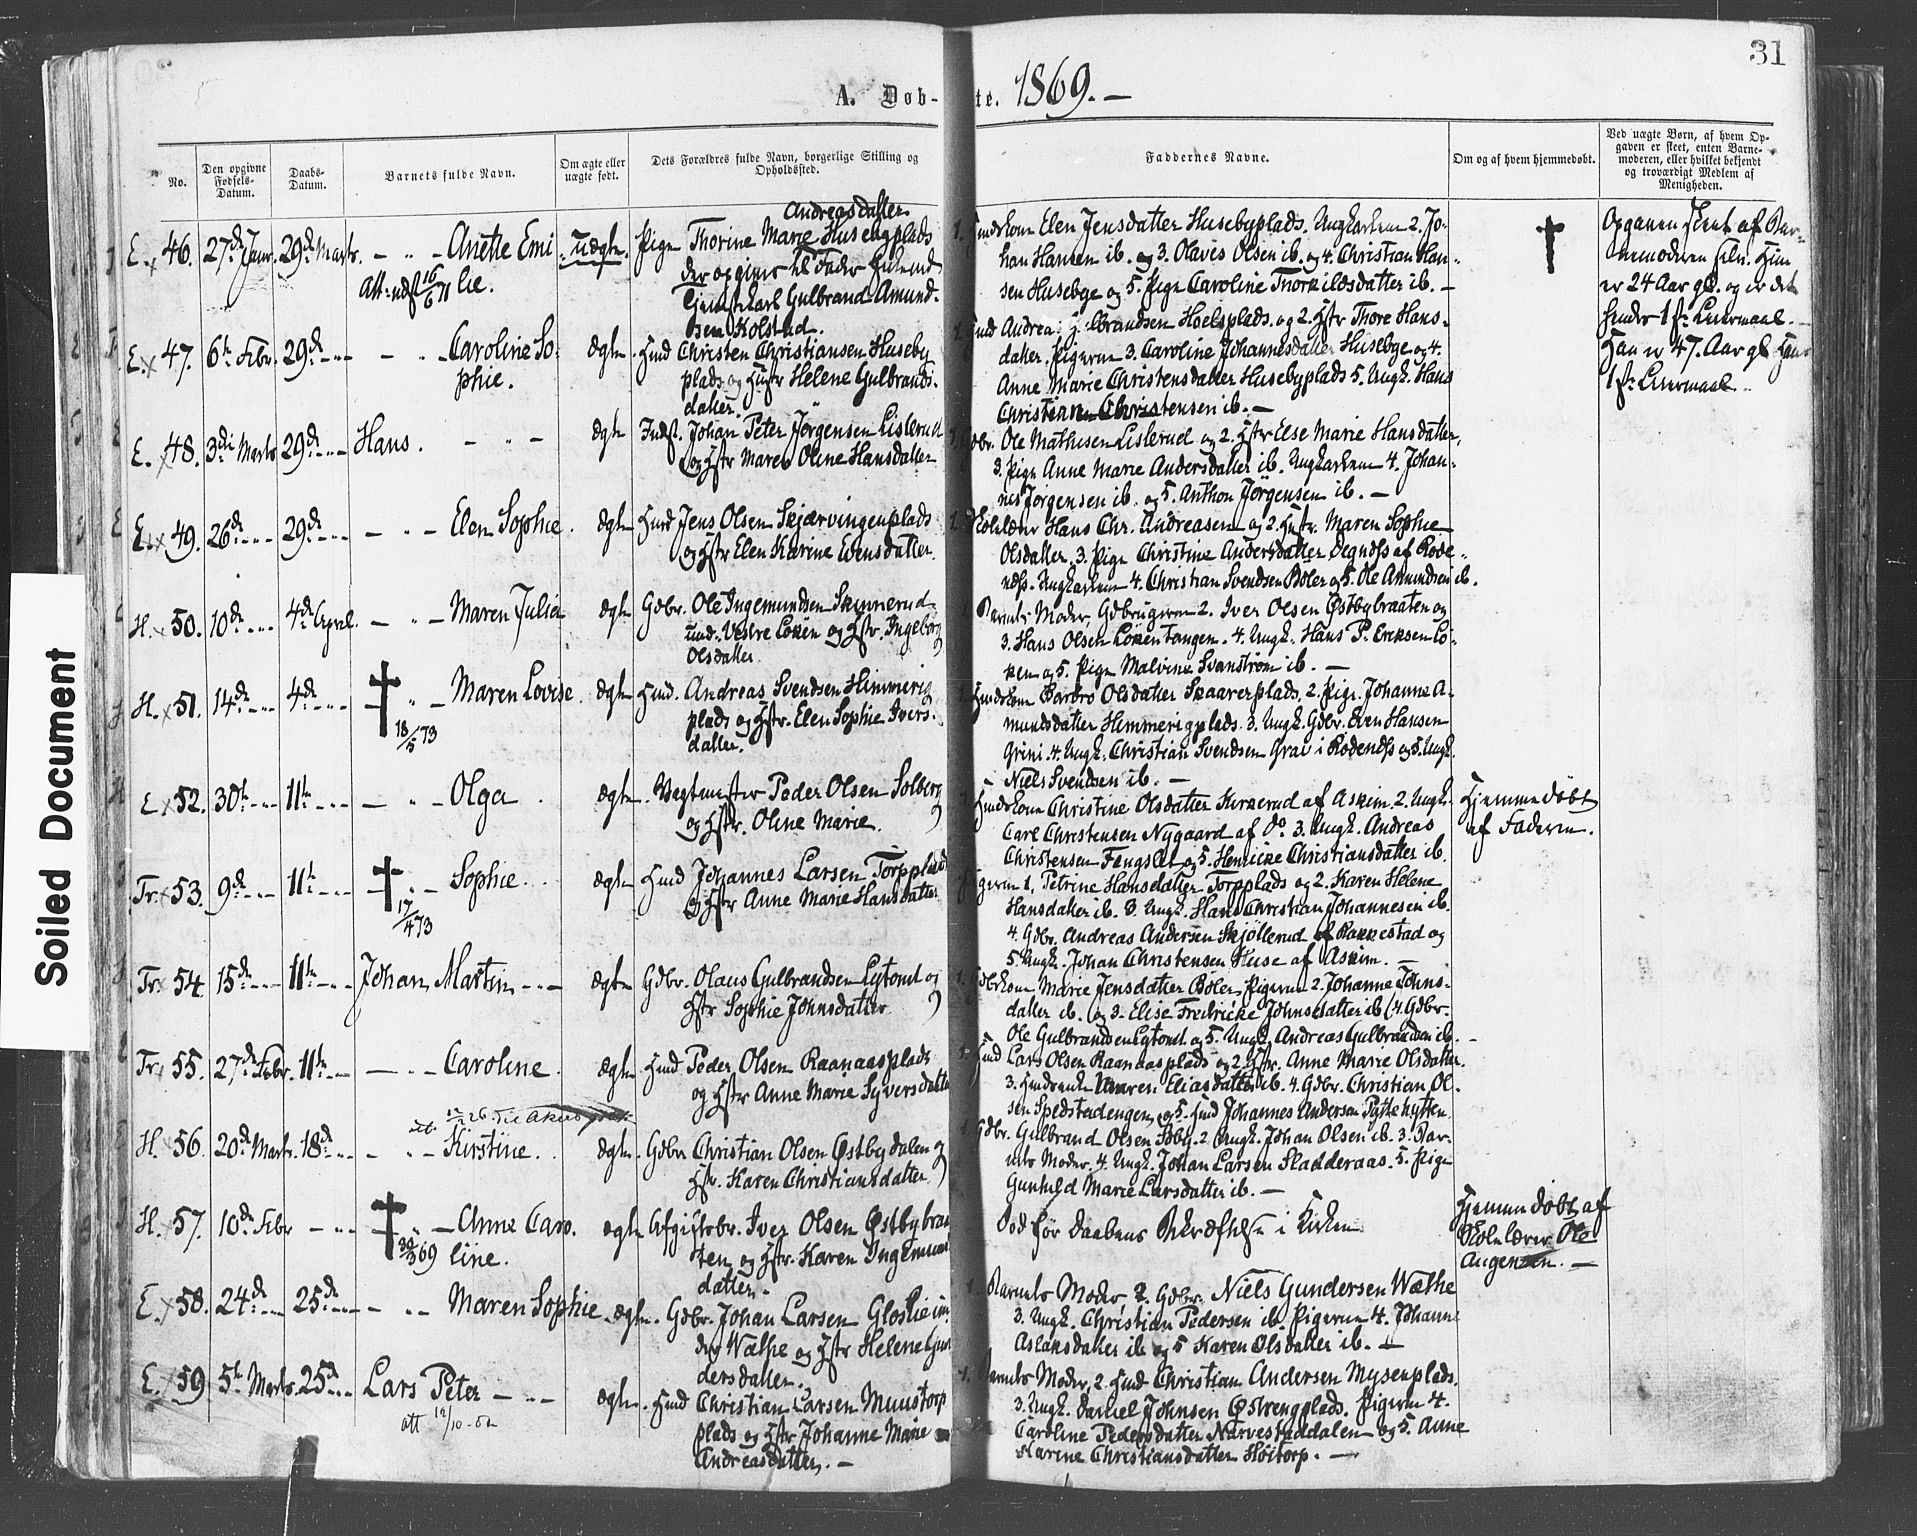 31
A. Døb-te. 1869. —
No.
Den opgivne Fødsels-Datum.
Daabs-Datum.
Barnets fulde Navn.
Om ægte eller uægte født.
Dets Forældres fulde Navn, borgerlige Stilling og Opholdssted.
Faddernes Navne.
Om og af hvem hjemmedøbt.
Ved uægte Børn, af hvem Opgaven er skeet, enten Barnemoderen, eller hvilket bekjendt og troværdigt Medlem af Menigheden.
Andreasdatter
E. 46. 27de Janr. 29de Marts. — " — Anette Emi uægte. Pige Thorine Marie Husengplads
Att: udst 16/6 71 lie. der opgiver til Fader
Gulbrand Amund-
sen Kolstad.
1. Elen Jensdatter Husebyplads. Ungkarlene 2. Jo-
han Hansen ib. og 3. Olavis Olsen ib. og 4. Christian Han-
sen Husebye og 5. Pige Caroline Thorkildsdatter ib. —
Opgaven skeet af Bar-
nemoderen selv. Hun
er 24 Aar gl. og er det
hendes 1ste Leiermaal. —
Han er 47 Aar gl. Hans
1ste Leiermaal —
E. 47. 6te Febr. 29de — — " — Caroline So- ægte. Huusmd Christen Christiansen Huseby
phie. plads og Hustr Helene Gulbrands-
datter.
Andreas Gulbrandsen Hoelsplads og 2. Hstr Thore Hans-
datter. Pigerne 3. Caroline Johannesdatter Husebye og 4.
Anne Marie Christensdatter Husebyplads 5. Ungk. Hans
Christian Christensen ib. —
E. 48. 3die Marts 29de — Hans. — " — ægte Indst. Johan Peter Jørgensen Lislerud
og Hstr Maren Oline Hansdatter
Gdbr. Ole Mathisen Lislerud og 2. Hstr Else Marie Hansdatter,
3. Pige Anne Marie Andersdatter ib. Ungkarlene 4. Johan-
nes Jørgensen ib. og 5. Anthon Jørgensen ib. —
E. 49. 26de — 29de — — " — Elen Sophie. ægte Huusmd Jens Olsen Skjærvingenplads
og Hstr Elen Karine Evensdatter.
1. Skolelærer Hans Chr. Andreasen og 2. Hustr. Maren Sophie
Olsdatter. 3. Pige Christine Andersdatter Degnæs af Røde-
næs. Ungkarlene 4. Christian Svendsen Bøler og 5. Ole Amundsen ib.
H. 50. 10de — 4de April. — " — Maren Julia ægte Gdbr. Ole Ingemundsen Skinnerud
und. Vestre Løken og Hstr. Ingeborg
Olsdatter.
Barnets Moder, Gdbrugerne 2. Iver Olsen Østbybraaten og
3. Hans Olsen Løkentangen. 4. Ungk. Hans P. Eriksen Lø-
ken og 5. Pige Malvine Svanstrøm ib. —
H. 51. 14de — 4de — — " — Maren Lovise. ægte Huusmd. Andreas Svendsen Himmerig
18/5 73 plads og Hstr. Elen Sophie Ivers-
datter.
1. Huusmdkone Barbro Olsdatter Skaarerplads. 2. Pige. Johanne A-
mundsdatter Himmerigplads. 3. Ungk. Gdbr. Even Hansen
Grini. 4. Ungk. Christian Svendsen Grav i Rødenæs og 5. Ungk.
Niels Svendsen ib. —
E 52. 30te — 11te — — " — Olga. ægte. Vegtmester Peder Olsen Solberg
og Hstr. Oline Marie.
Huusmdkone Christine Olsdatter Kirkerud af Askim. 2. Ungk.
Carl Christensen Nygaard af Do. 3. Ungk. Andreas
Christensen Fengsler og 5. Henricke Christiansdatter ib.
Hjemme døbt
af Faderen.
Tr. 53. 9de — 11te — — " — Sophie. ægte Huusmd Johannes Larsen Torpplads
17/4 73 og Hstr Anne Marie Hansdatter
Pigerne 1, Petrine Hansdatter Torpplads og 2. Karen Helene
Hansdatter ib. 3. Ungk. Hans Christian Johannesen ib.
4. Gdbr. Andreas Andersen Skjøllerud af Rakkestad og
5. Ungk. Johan Christensen Huse af Askim. —
Tr. 54. 15de — 11te — Johan Martin — — ægte Gdbr. Olaus Gulbrandsen Lytomt og
Hstr Sophie Johnsdatter
1. Gdbrkone Marie Jensdatter Bøler, Pigerne 2. Johanne Johns-
datter ib. og 3. Elise Fredricke Johnsdatter ib. 4. Gdbr.
Ole Gulbrandsen Lytomt og 5. Ungk. Andreas Gulbrandsen ib. —
Tr. 55. 27de Febr. 11te — — — Caroline. ægte Huusmd Peder Olsen Raanaasplads
og Hstr Anne Marie Syversdatter
1. Huusmd Lars Olsen Raanaasplads og 2. Hstr. Anne Marie Olsdatter.
3. Maren Eliasdatter ib. 4. Gdbr. Christian Ol-
sen Spedstadengen og 5. Huusmd Johannes Andersen Pyttehytten
H. 56. 20de Marts. 18de — — " — Kirstine. ægte. Gdbr Christian Olsen Østbydalen og
Hstr. Karen Christiansdatter
Gdbr. Gulbrand Olsen 2. Ungk. Johan Olsen ib. 3. Bar-
nets Moder. 4. Ungk. Johan Larsen Sladderaas. 5. Pige
Gunhild Marie Larsdatter ib. —
H. 57. 10de Febr — — " — Anne Caro- ægte Afgiftsbr. Iver Olsen Østbybraa
30/3 69 line. ten og Hstr. Karen Ingemunds
datter.
Død før Daabens Bekræftelse i Kirken
Hjemme døbt af
Skolelærer Ole
Augensen. —
E. 58. 24de — 25de — — " — Maren Sophie. ægte. Gdbr. Johan Larsen Gloslie un-
der Wæthe og Hstr Helene Gun
dersdatter.
1. Barnets Moder 2. Gdbr. Niels Gundersen Wæthe
3. Ungk. Christian Pedersen ib. Pigerne 4. Johanne
Aslaksdatter ib. og 5 Karen Olsdatter ib. —
E. 59 5te Marts. 25de — Lars Peter — — ægte. Huusmd Christian Larsen Muustorp
att 12/10 - plads og Hstr Johanne Marie
Andreasdatter. —
1. Barnets Moder, 2. Huusmd Christian Andersen Mysenplads.
3. Ungk. Daniel Johnsen Østrengplads. Pigerne 4.
Caroline Pedersdatter Narvestaddalen og 5. Anne
Karine Christiansdatter Høitorp. —
Soiled Document